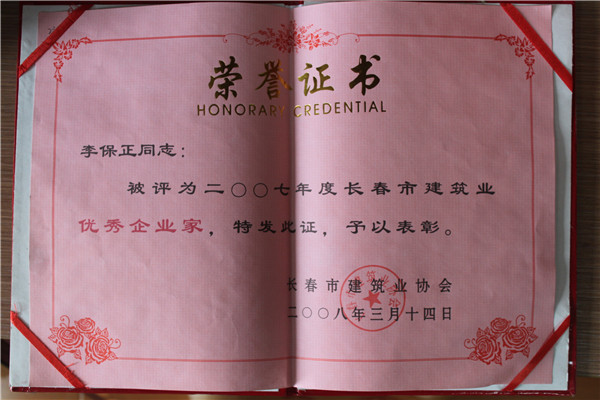 荣誉证书
HONORARY CREDENTIAL
李保正同志：
被评为二〇〇七年度长春市建筑业
优秀企业家，特发此证，予以表彰。
长春市建筑业协会
二〇〇八年三月十四日